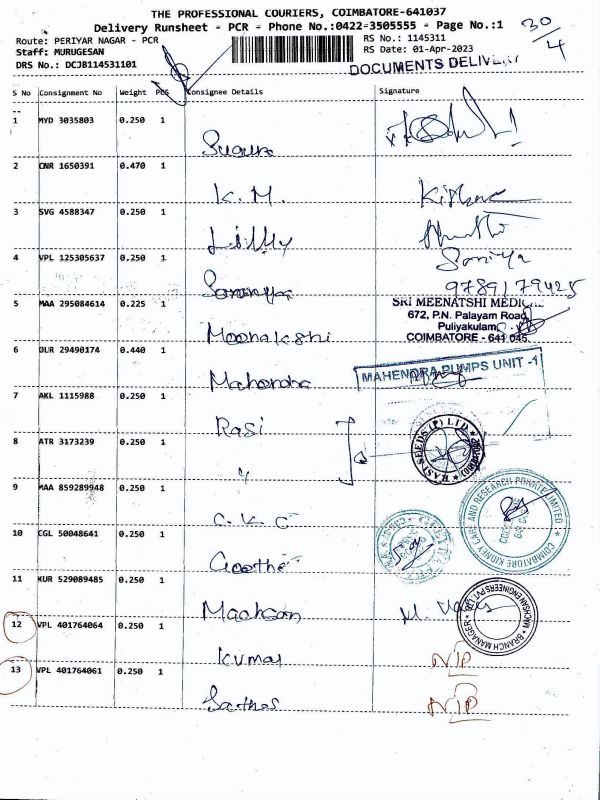 THE PROFESSIONAL COURIERS, COIMBATORE-641037
Delivery Runsheet - PCR - Phone No.:0422-3505555 - Page No.:1
30/4
Route: PERIYAR NAGAR - PCR
RS No.: 1145311
Staff: MURUGESAN
RS Date: 01-Apr-2023
DRS No.: DCJB114531101
DOCUMENTS
S No Consignment No Weight PCS Consignee Details Signature
1 MYD 3035803 0.250 1
2 CNR 1650391 0.470 1 K. M.
3 SVG 4588347 0.250 1
4 VPL 125305637 0.250 1 Saranya Soniya
9789179425
5 MAA 295084614 0.225 1 Meenakshi
SRI MEENATSHI
672, P.N. Palayam Road
Puliyakulam
COIMBATORE - 641 045
6 DLR 29490174 0.440 1 Mahendra
MAHENDRA PUMPS UNIT -1
7 AKL 1115988 0.250 1 Rasi
RASI SEEDS (P) LTD
8 ATR 3173239 0.250 1 "
9 MAA 859289948 0.250 1 C. K. C
COIMBATORE KIDNEY CARE AND RESEARCH PRIVATE LIMITED
10 CGL 50048641 0.250 1
11 KUR 529089485 0.250 1
BRANCH MANAGER
12 VPL 401764064 0.250 1 Kumar N/P
13 VPL 401764061 0.250 1 Sathes N/P